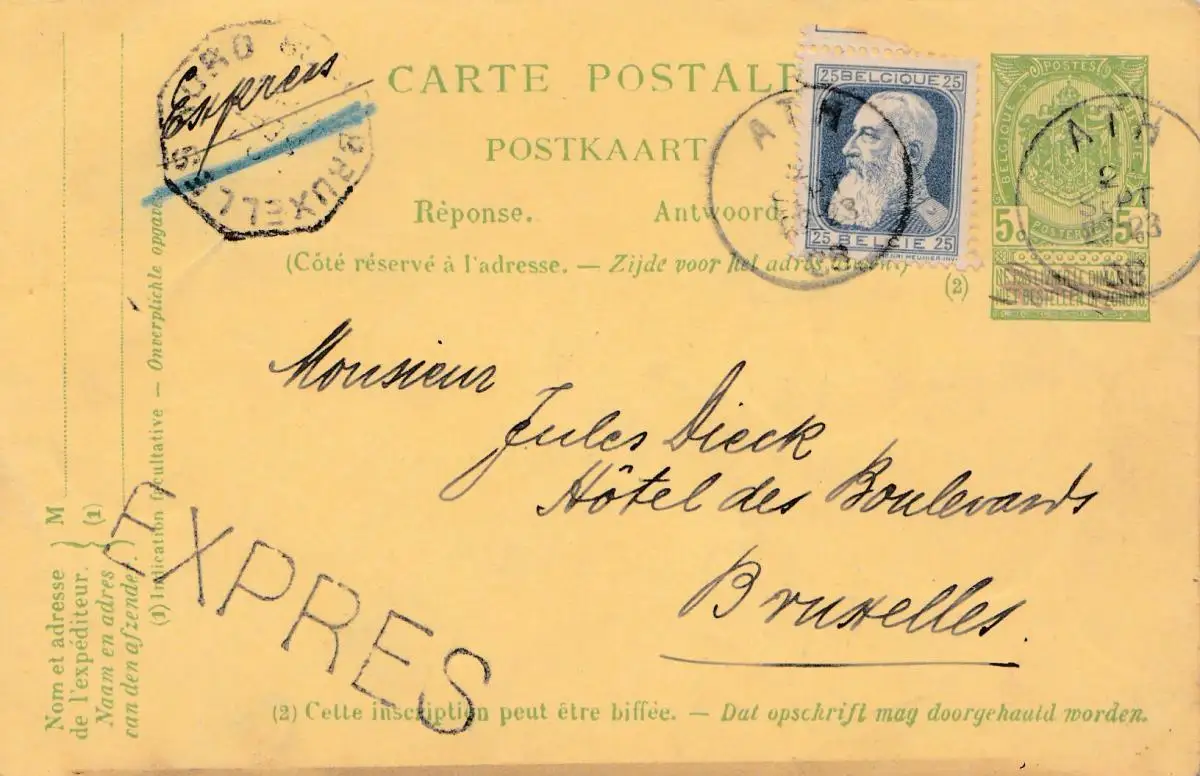 Exprès
CARTE POSTALE
POSTKAART
Réponse. Antwoord.
(Côté réservé à l'adresse. — Zijde voor het adres
(2)
25 BELGIQUE 25
25 BELGIE 25
POSTES
BELGIQUE
POSTERIJEN
5c 5c
NE PAS LIVRER LE DIMANCHE
NIET BESTELLEN OP ZONDAG
ATH
ATH
2
SEPT
23
BRUXELLES
NORD
Monsieur
Jules Dieck
Hôtel des Boulevards
Bruxelles.
EXPRES
M
(1)
Nom et adresse
de l'expéditeur.
Naam en adres
van den afzender.
(1) Indication facultative — Onverplichte opgave
(2) Cette inscription peut être biffée. — Dat opschrift mag doorgehauld worden.